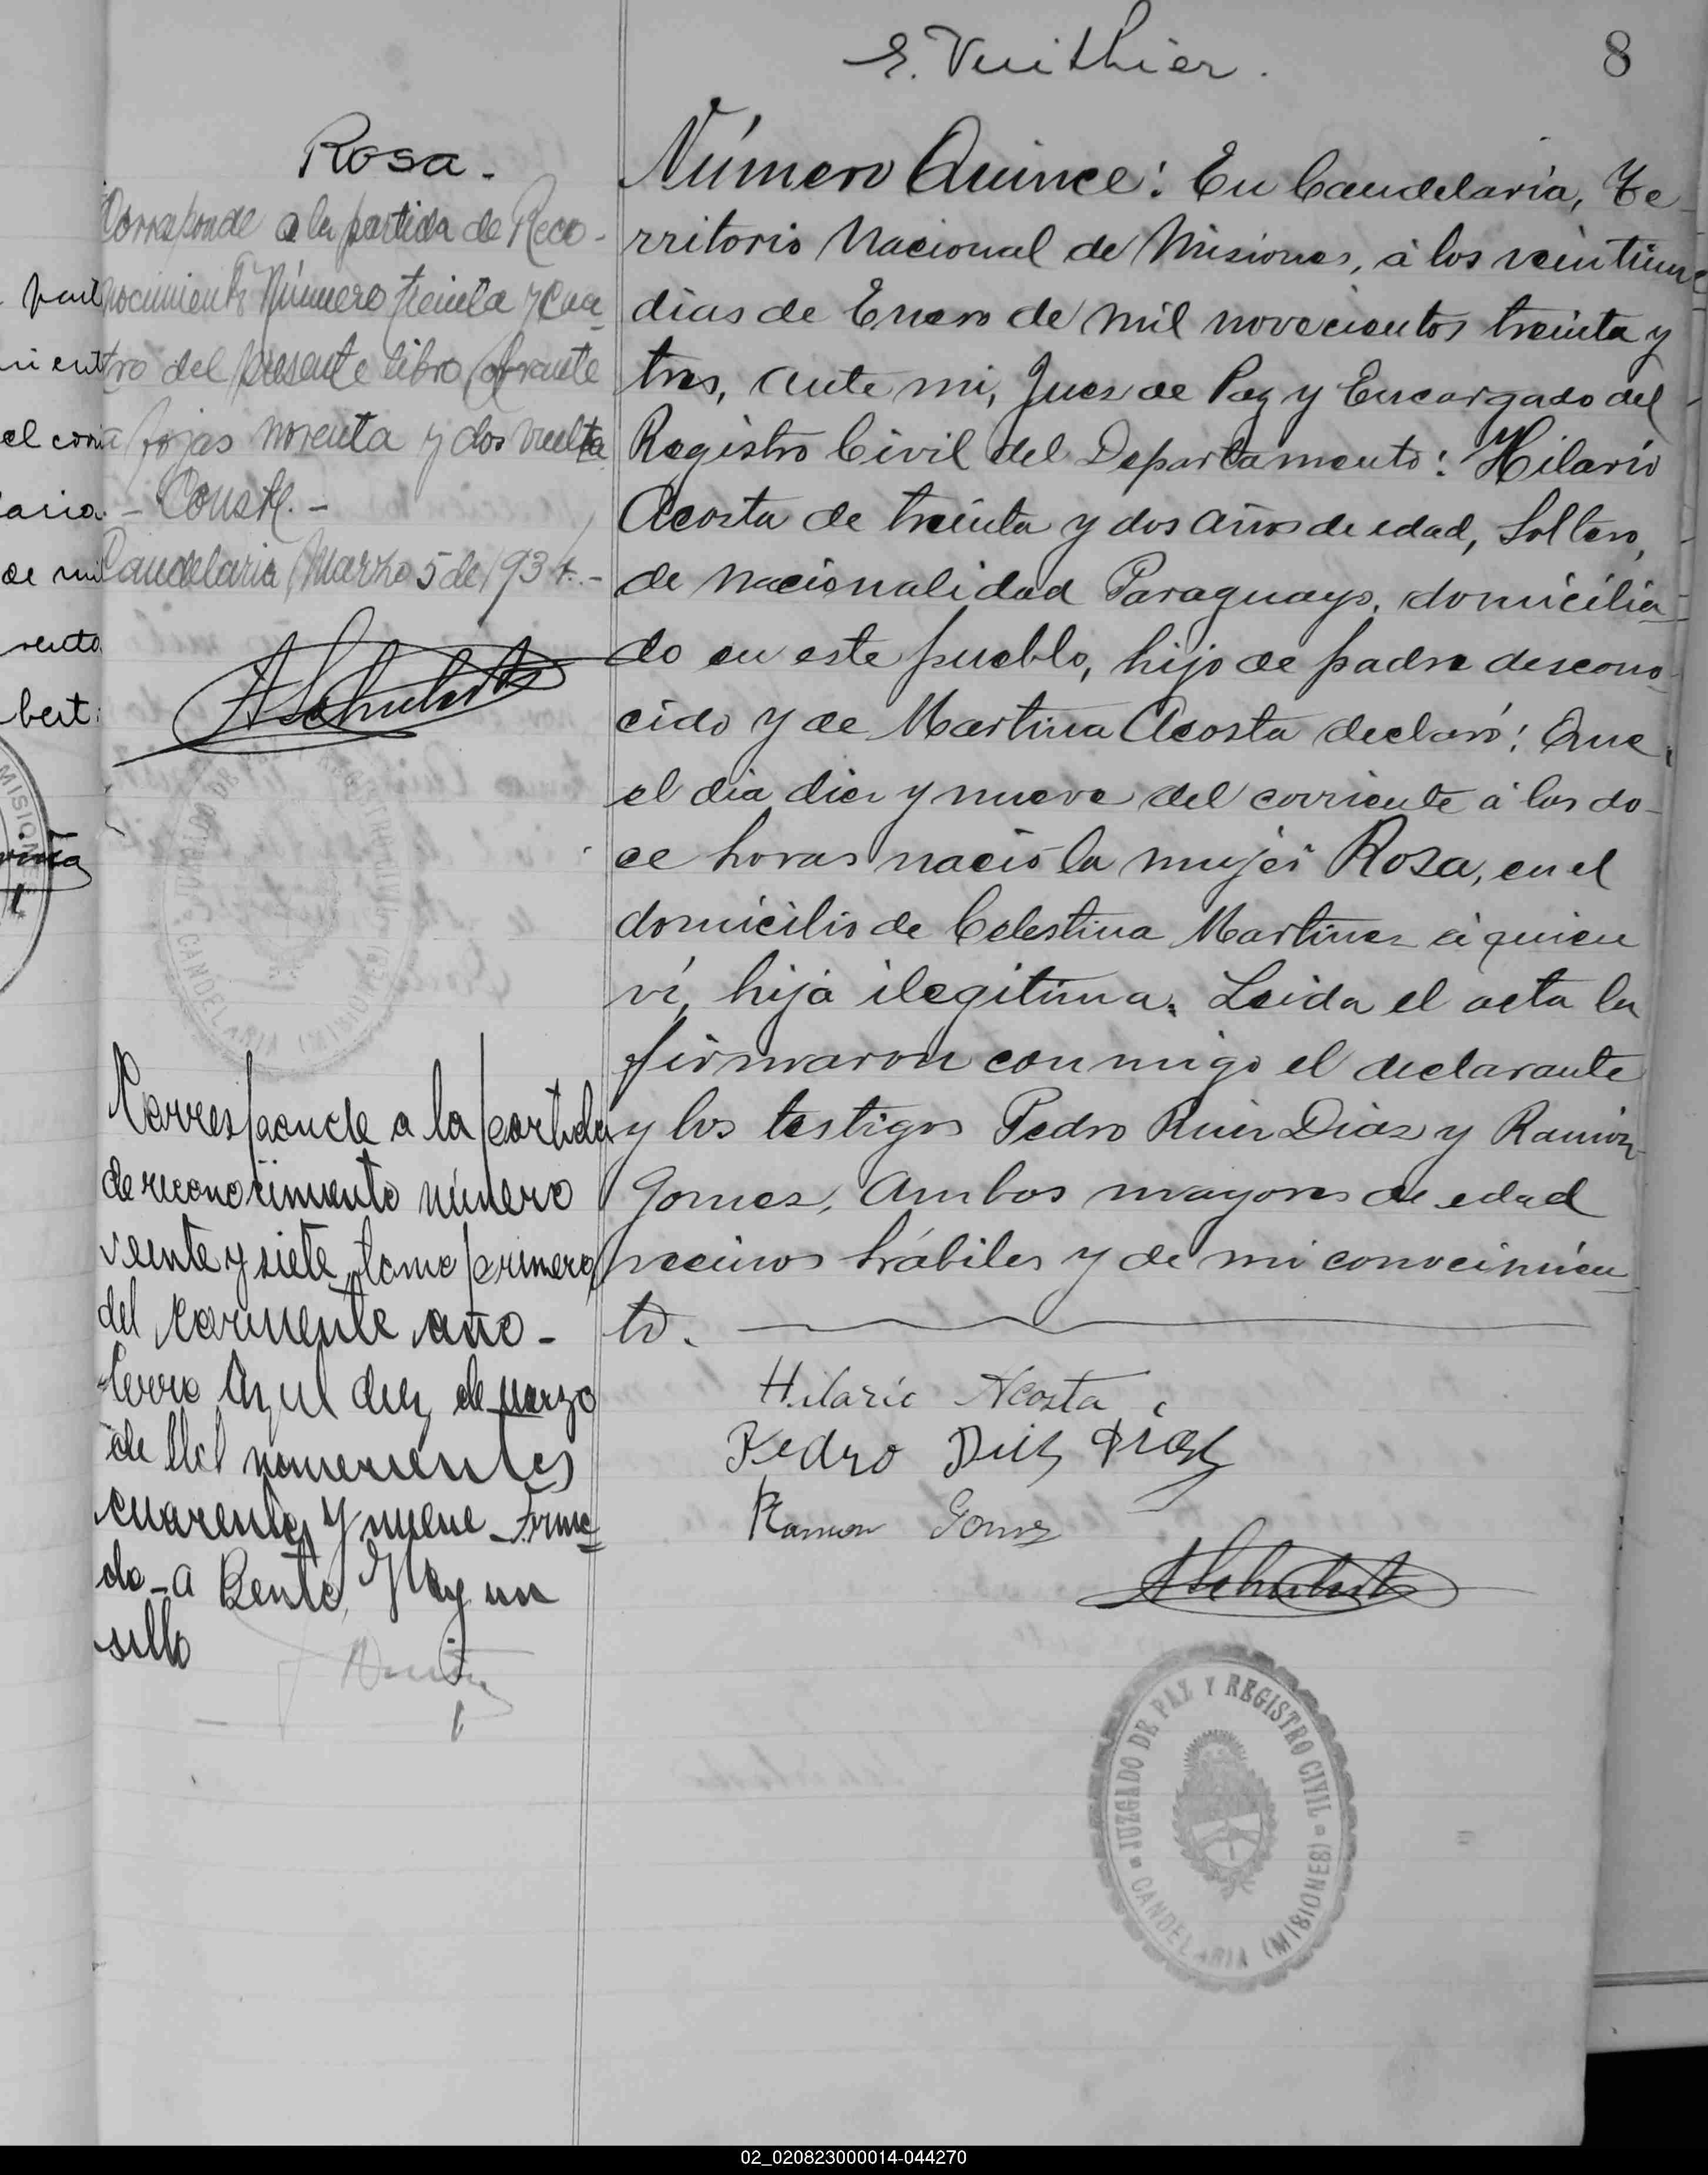 E. Vuithier.
8
Rosa.-
Corresponde a la partida de Reco-
nocimiento Número treinta y cua-
tro del presente libro obrante
a fojas noventa y dos vuelta
- Conste. -
Candelaria, Marzo 5 de 1934.-
ASchubert
Corresponde a la partida
de reconocimiento número
veinte y siete tomo primero
del corriente año -
Cerro Azul diez de marzo
de Mil novecientos
cuarenta y nueve - Firma
do - A Bente, Hay un
sello
Número Quince: En Candelaria, Te-
rritorio Nacional de Misiones, á los veintiun
dias de Enero de mil novecientos treinta y
tres, ante mi, Juez de Paz y Encargado del
Registro Civil del Departamento: Hilario
Acosta de treinta y dos años de edad, Soltero,
de nacionalidad Paraguayo, domicilia-
do en este pueblo, hijo de padre descono-
cido y de Martina Acosta declaró: Que
el dia diez y nueve del corriente á las do-
ce horas nació la mujer Rosa, en el
domicilio de Celestina Martinez á quien
ví, hija ilegitima. Leida el acta la
firmaron conmigo el declarante
y los testigos Pedro Ruiz Diaz y Ramón
Gomez, Ambos mayores de edad
vecinos hábiles y de mi conocimien-
to.
Hilario Acosta
Pedro Ruiz Diaz
Ramon Gomez
ASchubert
JUZGADO DE PAZ Y REGISTRO CIVIL
CANDELARIA (MISIONES)
02_020823000014-044270